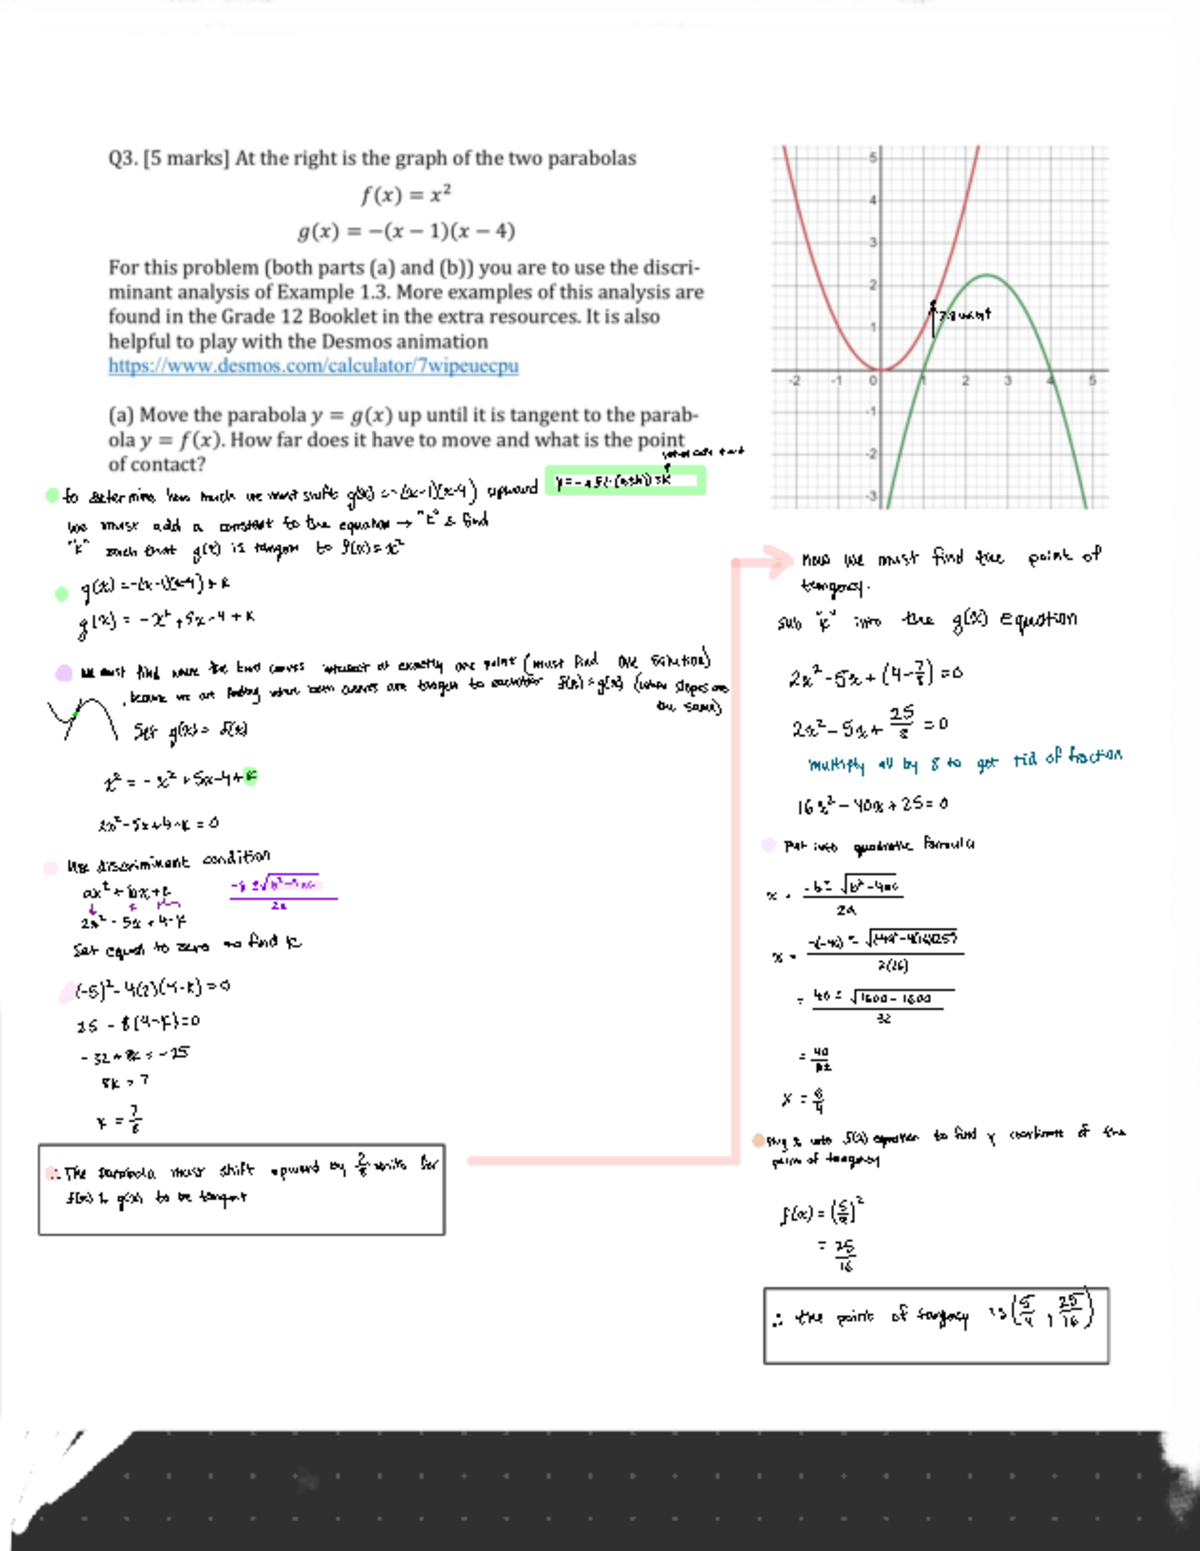 Q3. [5 marks] At the right is the graph of the two parabolas
f(x) = x²
g(x) = −(x − 1)(x − 4)
For this problem (both parts (a) and (b)) you are to use the discri-
minant analysis of Example 1.3. More examples of this analysis are
found in the Grade 12 Booklet in the extra resources. It is also
helpful to play with the Desmos animation
https://www.desmos.com/calculator/7wipeuecpu
(a) Move the parabola y = g(x) up until it is tangent to the parab-
ola y = f(x). How far does it have to move and what is the point
of contact?
5
4
3
2
1
-2
-1
0
1
2
3
4
5
-1
-2
-3
to determine how much we must shift g(x) = -(x-1)(x-4) upward
we must add a constant to the equation → "k" & find
"k" such that g(x) is tangent to f(x) = x²
g(x) = -(x-1)(x-4) + k
g(x) = -x² + 5x - 4 + k
we must find where the two curves intersect at exactly one point (must find one solution)
because we are finding when both curves are tangent to eachother f(x) = g(x) (when slopes are
the same)
Set g(x) = f(x)
x² = -x² + 5x - 4 + k
2x² - 5x + 4 - k = 0
Use discriminant condition
ax² + bx + c
-b ± √b² - 4ac
2a
2x² - 5x + 4 - k
Set equal to zero to find k
(-5)² - 4(2)(4-k) = 0
25 - 8(4-k) = 0
-32 + 8k = -25
8k = 7
k = 7/8
∴ The parabola must shift upward by 7/8 units for
f(x) & g(x) to be tangent
now we must find the point of
tangency.
sub "k" into the g(x) equation
2x² - 5x + (4 - 7/8) = 0
2x² - 5x + 25/8 = 0
multiply all by 8 to get rid of fraction
16x² - 40x + 25 = 0
Put into quadratic formula
x = -b ± √b² - 4ac
2a
x = -(-40) ± √(-40)² - 4(16)(25)
2(16)
= 40 ± √1600 - 1600
32
= 40/32
x = 5/4
plug x into f(x) equation to find y coordinate of the
point of tangency
f(x) = (5/4)²
= 25/16
∴ the point of tangency is (5/4, 25/16)